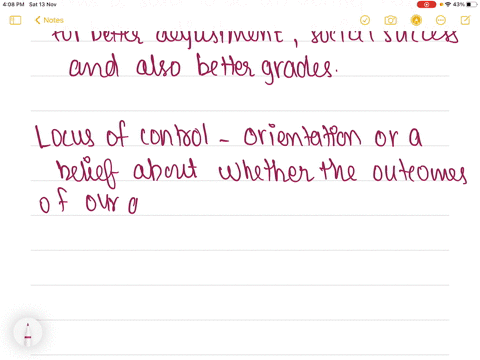 4:08 PM Sat 13 Nov 43%
Notes
for better adjustment, social success
and also better grades.
Locus of control - orientation or a
belief about whether the outcomes
of our a